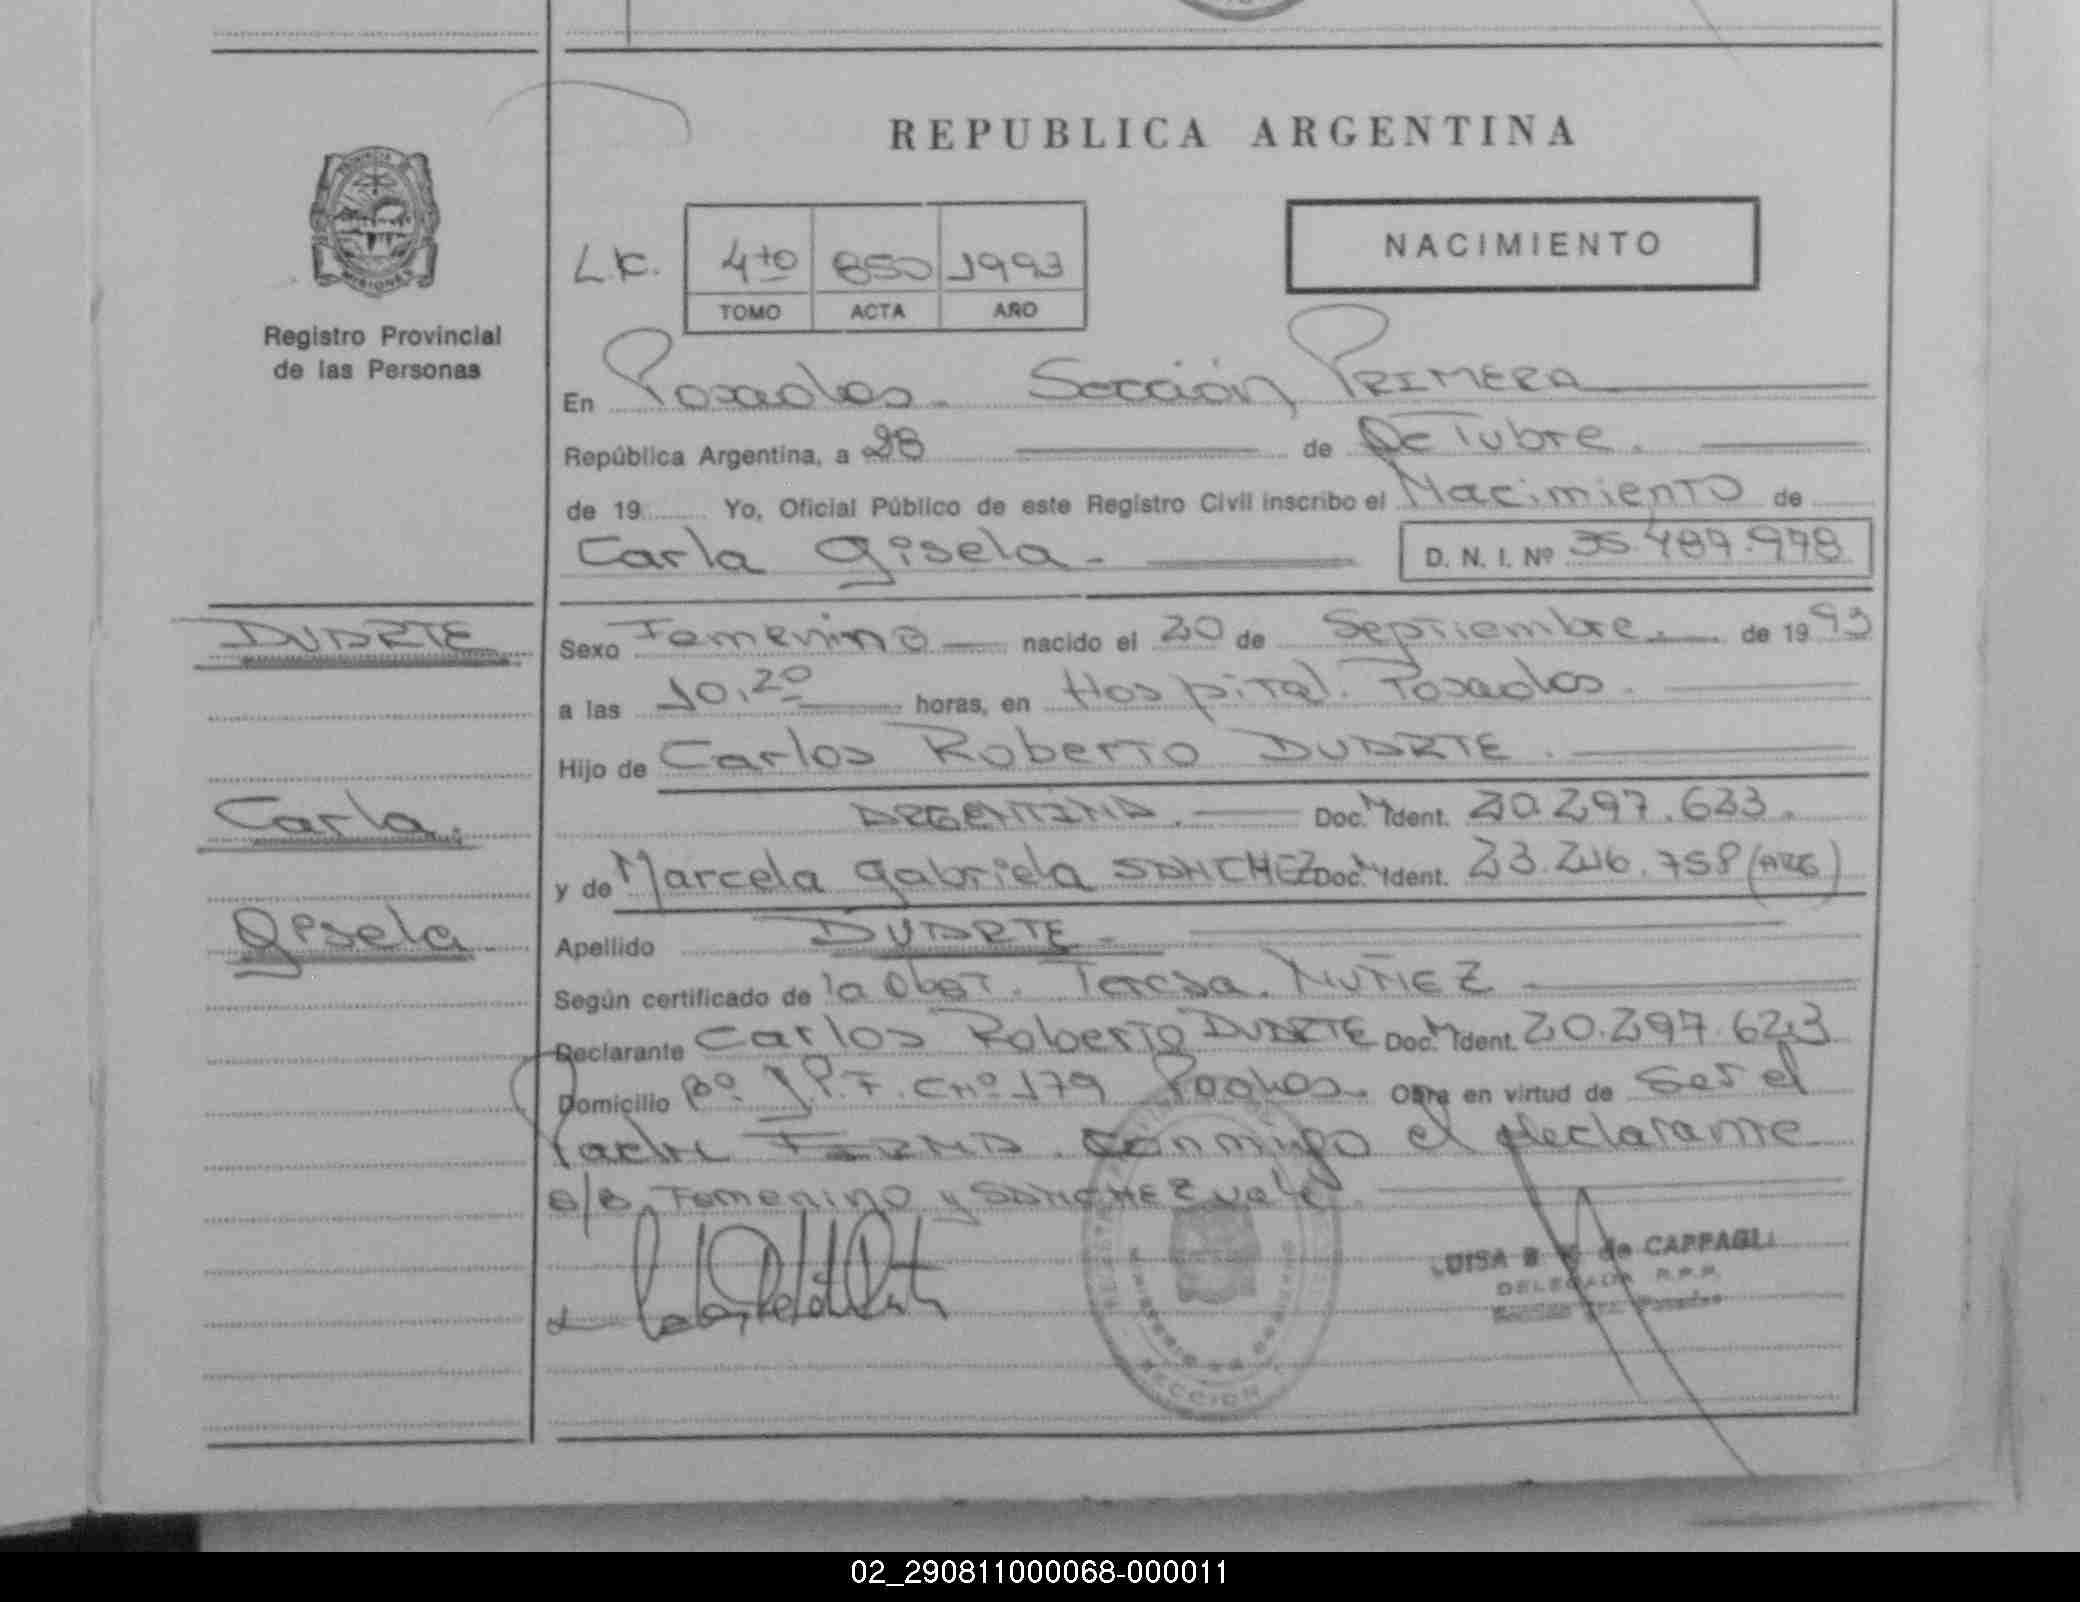 REPUBLICA ARGENTINA
NACIMIENTO
LK. 4to 850 1993
TOMO ACTA AÑO
Registro Provincial
de las Personas
En Posadas. Sección PRIMERA
República Argentina, a 28 de Octubre.
de 19 Yo, Oficial Público de este Registro Civil inscribo el Nacimiento de
Carla Gisela. D. N. I. Nº 35.487.978
DUARTE
Sexo Femenino nacido el 20 de Septiembre. de 1993
a las 10,20 horas, en Hospital. Posadas.
Hijo de Carlos Roberto DUARTE.
Carla.
ARGENTINA. Doc. Ident. 20.297.623.
y de Marcela Gabriela SANCHEZ Doc. Ident. 23.246.758 (ARG)
Gisela
Apellido DUARTE.
Según certificado de la Obst. Teresa. NUÑEZ
Declarante Carlos Roberto DUARTE Doc. Ident. 20.297.623
Domicilio Bº J.P.F. C nº 179 Posadas. Obra en virtud de ser el
Padre FIRMA. Conmigo el declarante
s/b Femenino y SANCHEZ vale.
LUISA B de CAPPAGLI
DELEGADA R.P.P.
SECCION
02_290811000068-000011